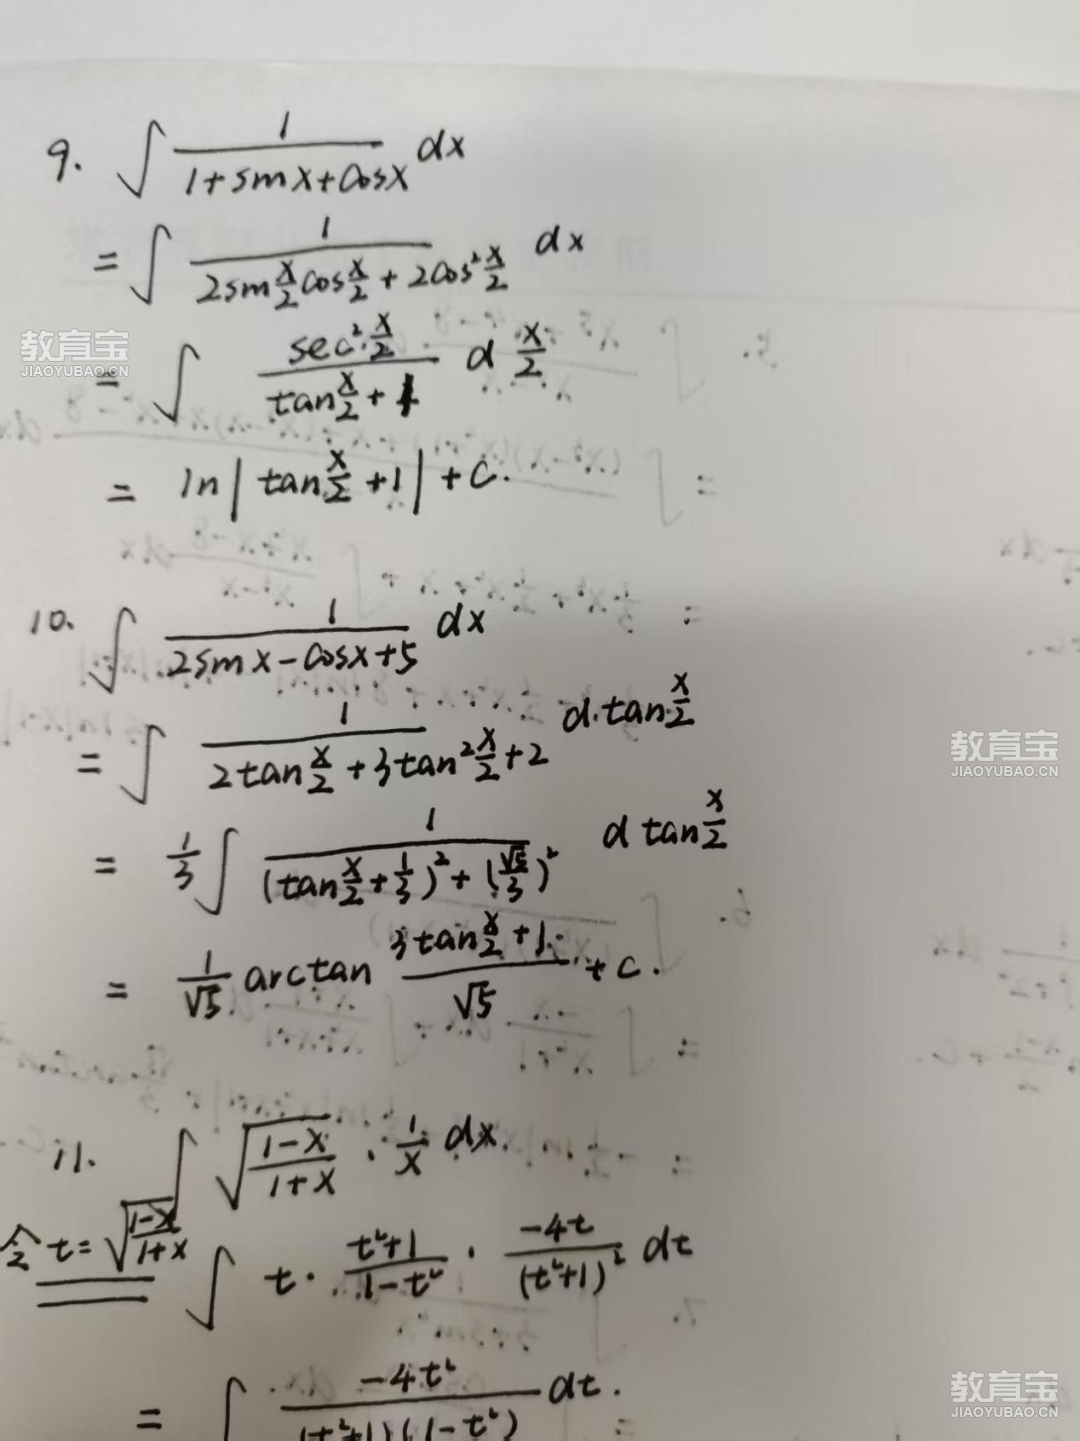 9. ∫ 1/(1+sinx+cosx) dx
= ∫ 1/(2sin x/2 cos x/2 + 2cos² x/2) dx
= ∫ sec² x/2 / (tan x/2 + 1) d x/2
= ln|tan x/2 +1| + C.
10. ∫ 1/(2sinx-cosx+5) dx
= ∫ 1/(2tan x/2 + 3tan² x/2 + 2) d tan x/2
= 1/3 ∫ 1/((tan x/2 + 1/3)² + (√5/3)²) d tan x/2
= 1/√5 arctan (3tan x/2 + 1)/√5 + C.
11. ∫ √((1-x)/(1+x)) · 1/x dx.
令 t = √((1-x)/(1+x)) ∫ t · (t²+1)/(1-t²) · (-4t)/(t²+1)² dt
= ∫ -4t²/((t²+1)(1-t²)) dt.
教育宝
JIAOYUBAO.CN
教育宝
JIAOYUBAO.CN
教育宝
JIAOYUBAO.CN